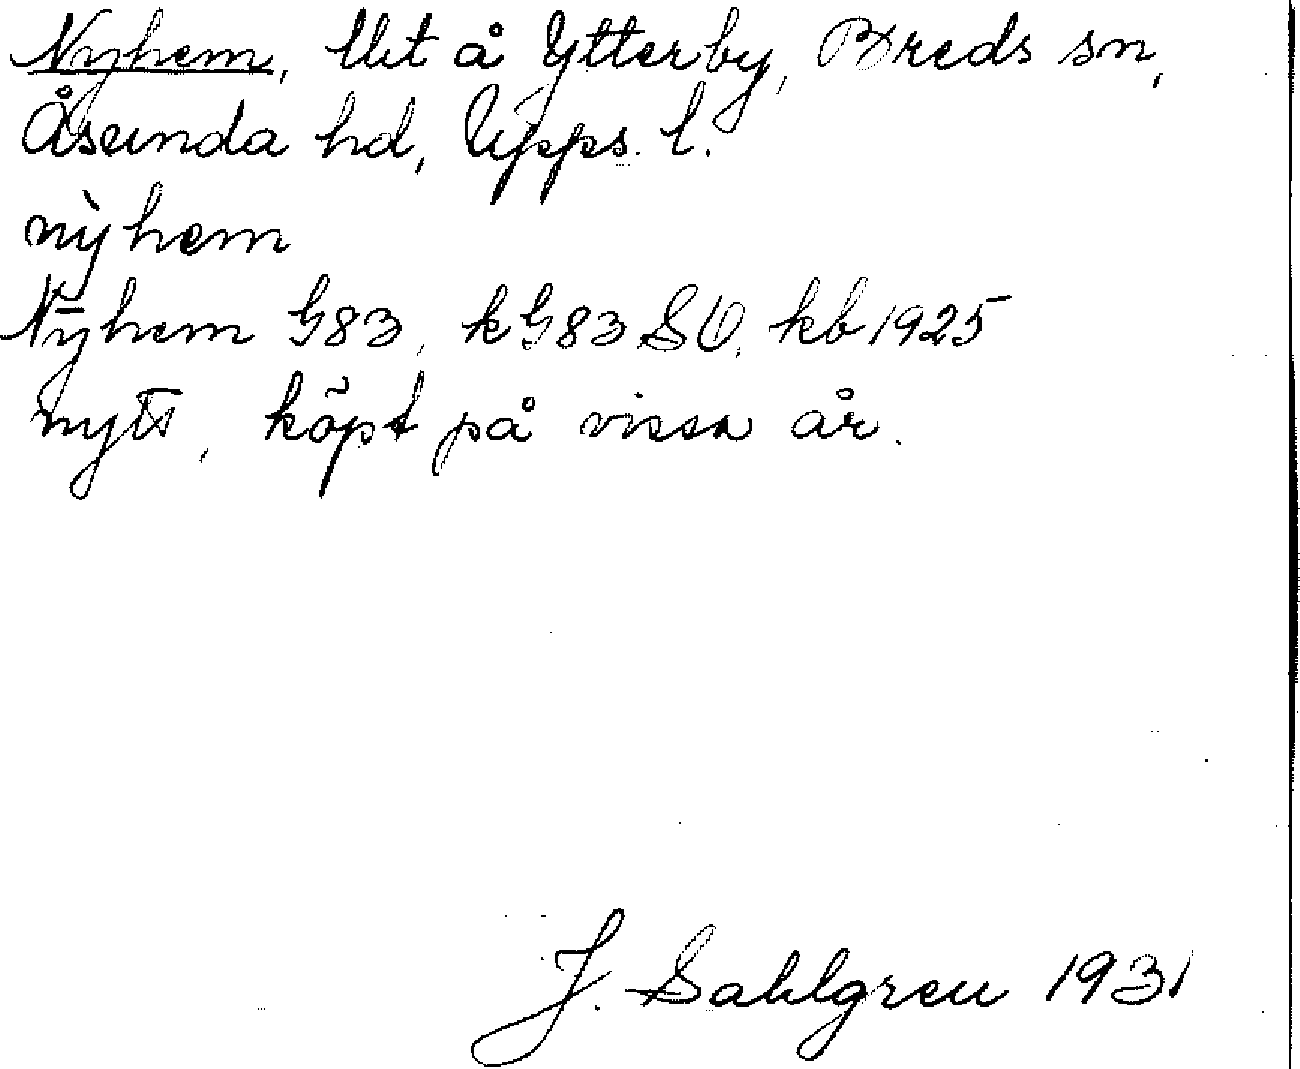 Nyhem, llht å Ytterby, Breds sn,
Åsunda hd, Upps. l.
nỳhem
Nyhem G83, kG83SO, kb1925
nytt, köpt på vissa år.
J. Sahlgren 1931